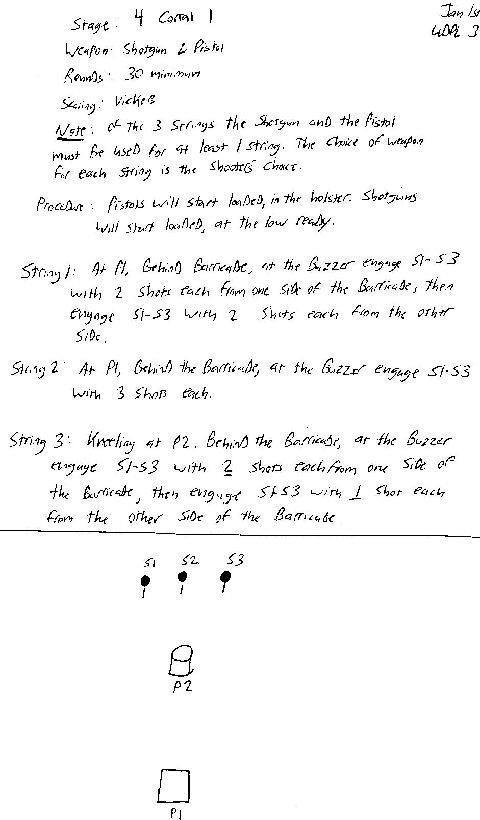 Stage: 4 Corral 1
Jan 1st
Weapon: Shotgun & Pistol
Rounds: 30 minimum
Scoring: Vickers
Note: of the 3 Strings the Shotgun and the Pistol
must be used for at least 1 string. The Choice of weapon
for each string is the Shooters Choice.
Procedure: Pistols will start loaded, in the holster. Shotguns
will start loaded, at the low ready.
String 1: At P1, Behind Barricade, at the Buzzer engage S1-S3
with 2 shots each from one side of the Barricade, then
engage S1-S3 with 2 shots each from the other
side.
String 2: At P1, Behind the Barricade, at the Buzzer engage S1-S3
with 3 shots each.
String 3: Kneeling at P2. Behind the Barricade, at the Buzzer
engage S1-S3 with 2 shots each from one side of
the Barricade, then engage S1-S3 with 1 shot each
from the other side of the Barricade
S1 S2 S3
P2
P1